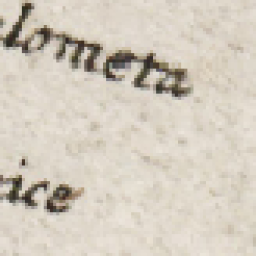 lometa
ice